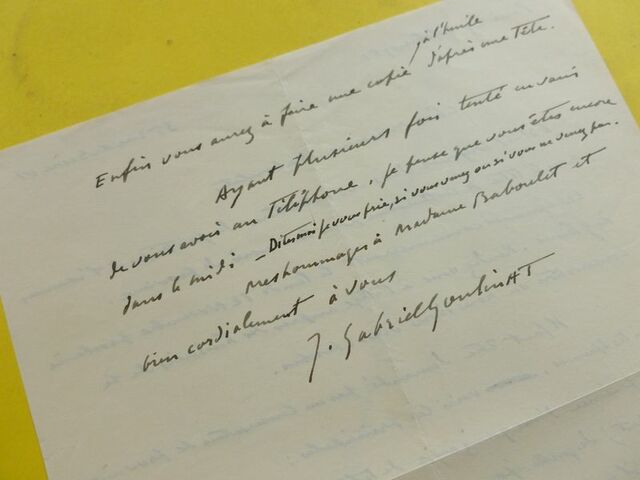 à l'huile
Enfin vous aurez à faire une copie d'après une Tête.
Ayant plusieurs fois tenté en vain
de vous avoir au Téléphone, je pense que vous êtes encore
dans le midi – Dites moi je vous prie, si vous venez ou si vous ne venez pas.
Mes hommages à Madame Baboulet et
bien cordialement à vous
J. Gabriel Goulinat